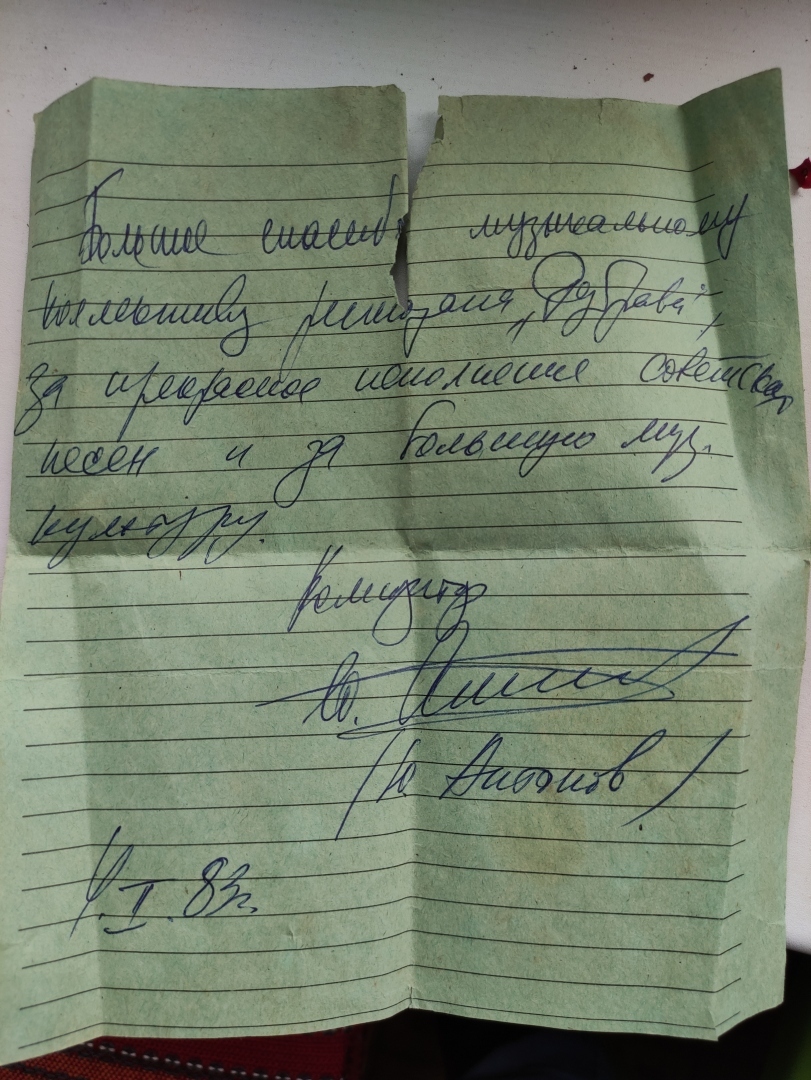 Большое спасибо музыкальному
коллективу ресторана „Дубрава",
за прекрасное исполнение советских
песен и за большую муз.
культуру.
Композитор
Ю. Антонов
/Ю Антонов/
4.II.83г.